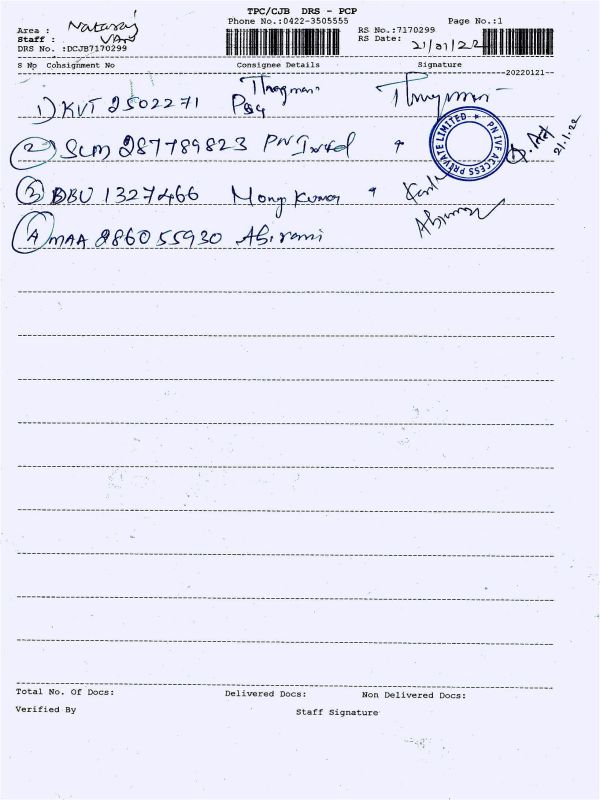 TPC/CJB DRS - PCP
Phone No.:0422-3505555 Page No.:1
Area : Nataraj
Staff :
DRS No. :DCJB7170299
RS No.:7170299
RS Date: 21/01/22
S No Consignment No Consignee Details Signature
20220121
1) KVT 2502271
2) SLM 287789823 PN
PN IVF ACCESS PRIVATE LIMITED
21.1.22
3) DBU 1327466 Kumar
4) MAA 286055930 Abirami
Total No. Of Docs: Delivered Docs: Non Delivered Docs:
Verified By Staff Signature